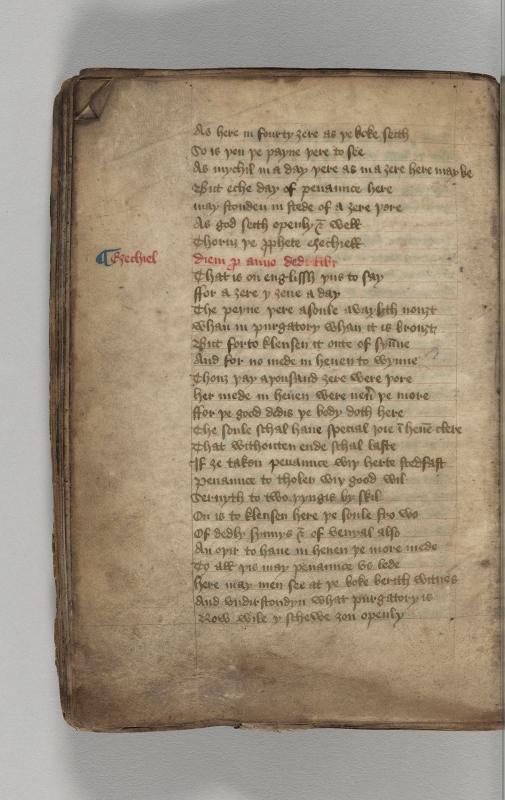 As here in fourty ȝere as þe boke seith
So is þen þe payne þere to see
As mychil in a day þere as in a ȝere here may be
But eche day of penaunce here
may stonden in stede of a ȝere þore
As god seith openly & well
Thoruȝ þe ꝓphete eȝechiell
¶ Eȝechiel
diem ꝓ anno dedi tibi
That is on englissh þus to say
ffor a ȝere y ȝeue a day
The peyne þere a soule awaylith nouȝt
whan in purgatory whan it is brouȝt
But forto klensen it oute of synne
And for no mede in heuen to wynne
Thouȝ þay a þousand ȝere were þore
her mede in heuen were neu̾ þe more
ffor þe good dedis þe body doth here
The soule schal haue special ioie ī heuē clere
That withouten ende schal laste
If ȝe taken penaunce wiþ herte stedfast
penaunce to tholer wiþ good wil
Seruyth to two þyngis by skil
On is to klensen here þe soule fro wo
Of dedly synnys & of venyal also
An oþir to haue in heuen þe more mede
To all þis may penaunce vs lede
here may men see at þe boke berith witnes
And vndirstondyn what purgatory is
Now wile y schewe ȝou openly